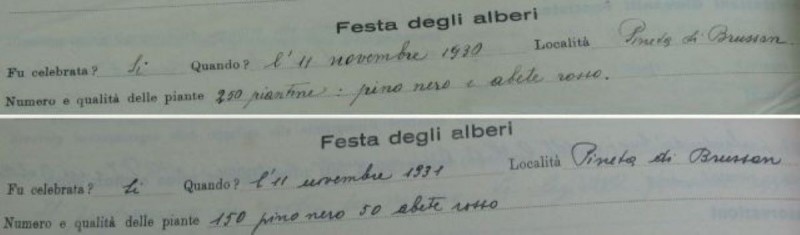 Festa degli alberi
Fu celebrata? Si Quando? l'11 novembre 1930 Località Pineta di Brusson.
Numero e qualità delle piante 250 piantine : pino nero e abete rosso.
Festa degli alberi
Fu celebrata? Si Quando? l'11 novembre 1931 Località Pineta di Brusson
Numero e qualità delle piante 150 pino nero 50 abete rosso